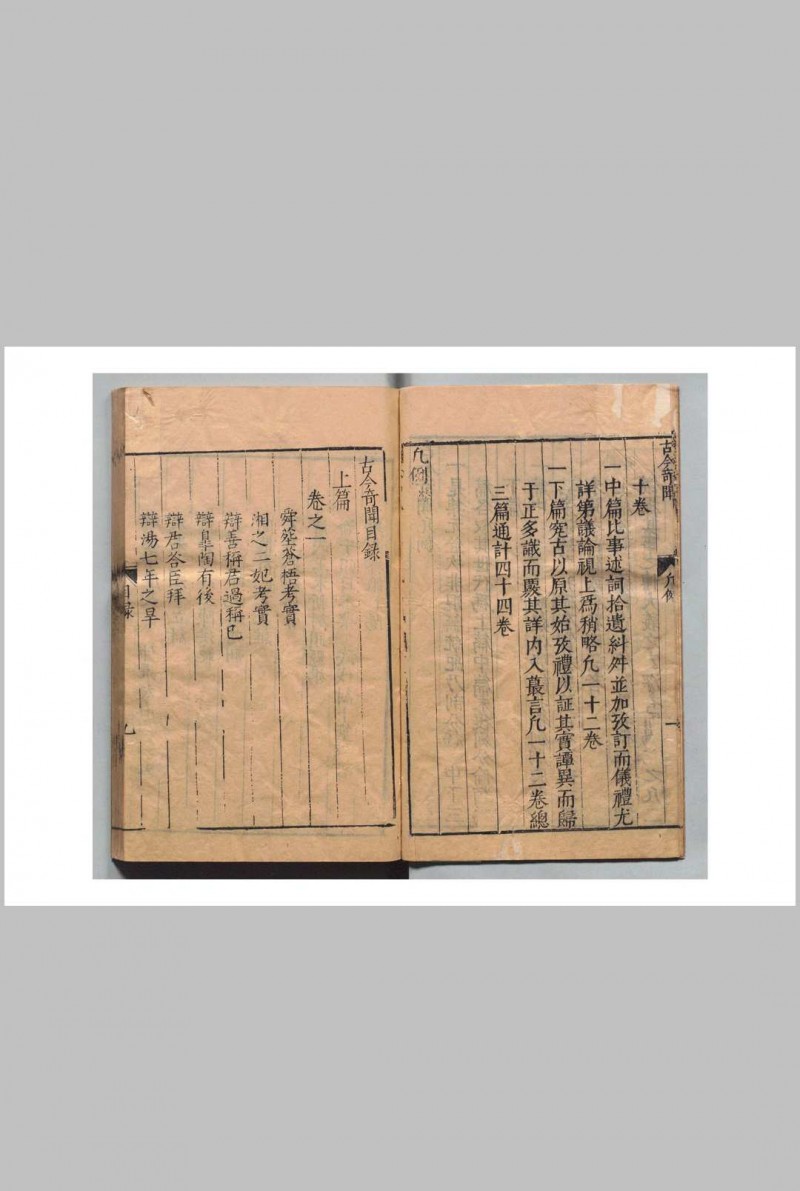 古今奇聞
凡例
一
十卷
一中篇比事述詞拾遺糾舛並加攷訂而儀禮尤
詳第議論視上爲稍略凡一十二卷
一下篇究古以原其始攷禮以証其實譚異而歸
于正多識而覈其詳内入蕞言凡一十二卷總
三篇通計四十四卷
凡例
古今奇聞目録
上篇
卷之一
舜塟蒼梧考實
湘之二妃考實
辯善稱君過稱已
辯皐陶有後
辯君答臣拜
辯湯七年之旱
目録